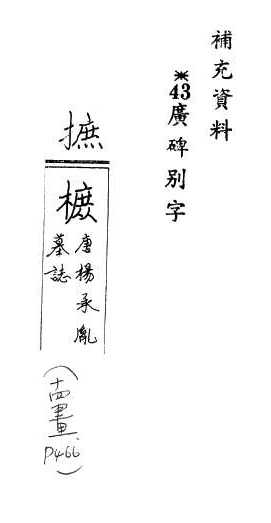 補充資料
※43廣碑别字
摭
樜
唐楊承胤
墓誌
(十四畫
P466)